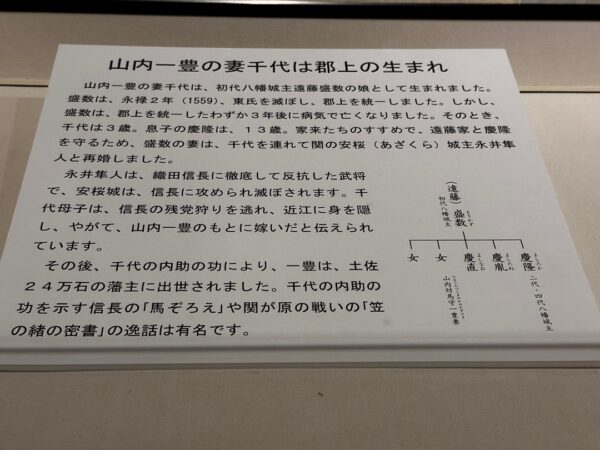 山内一豊の妻千代は郡上の生まれ
山内一豊の妻千代は、初代八幡城主遠藤盛数の娘として生まれました。
盛数は、永禄2年（1559）、東氏を滅ぼし、郡上を統一しました。しかし、
盛数は、郡上を統一したわずか3年後に病気で亡くなりました。そのとき、
千代は3歳。息子の慶隆は、13歳。家来たちのすすめで、遠藤家と慶隆
を守るため、盛数の妻は、千代を連れて関の安桜（あざくら）城主永井隼
人と再婚しました。
永井隼人は、織田信長に徹底して反抗した武将
で、安桜城は、信長に攻められ滅ぼされます。千
代母子は、信長の残党狩りを逃れ、近江に身を隠
し、やがて、山内一豊のもとに嫁いだと伝えられ
ています。
その後、千代の内助の功により、一豊は、土佐
24万石の藩主に出世されました。千代の内助の
功を示す信長の「馬ぞろえ」や関が原の戦いの「笠
の緒の密書」の逸話は有名です。
（遠藤）盛数
もりかず
初代八幡城主
慶隆
よしたか
二代・四代八幡城主
慶胤
よしたね
慶直
よしなお
女
山内対馬守一豊妻
女